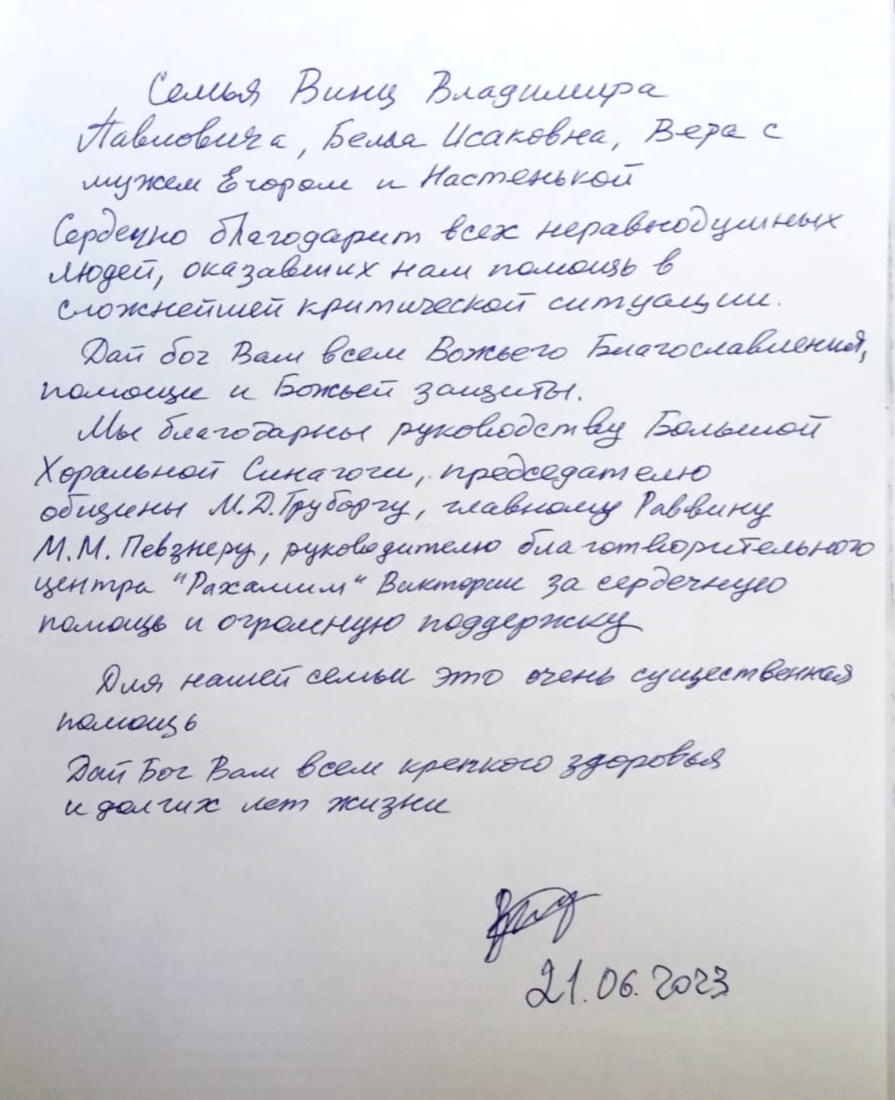 Семья Винц Владимира
Павловича, Белла Исаковна, Вера с
мужем Егором и Настенькой
Сердечно благодарит всех неравнодушных
людей, оказавших нам помощь в
сложнейшей критической ситуации.
Дай бог Вам всем Божьего Благославления,
помощи и Божьей защиты.
Мы благодарны руководству Большой
Хоральной Синагоги, председателю
общины М.Д.Грубаргу, главному Раввину
М.М. Певзнеру, руководителю благотворительного
центра "Рахамим" Виктории за сердечную
помощь и огромную поддержку
Для нашей семьи это очень существенная
помощь
Дай Бог Вам всем крепкого здоровья
и долгих лет жизни
21.06.2023